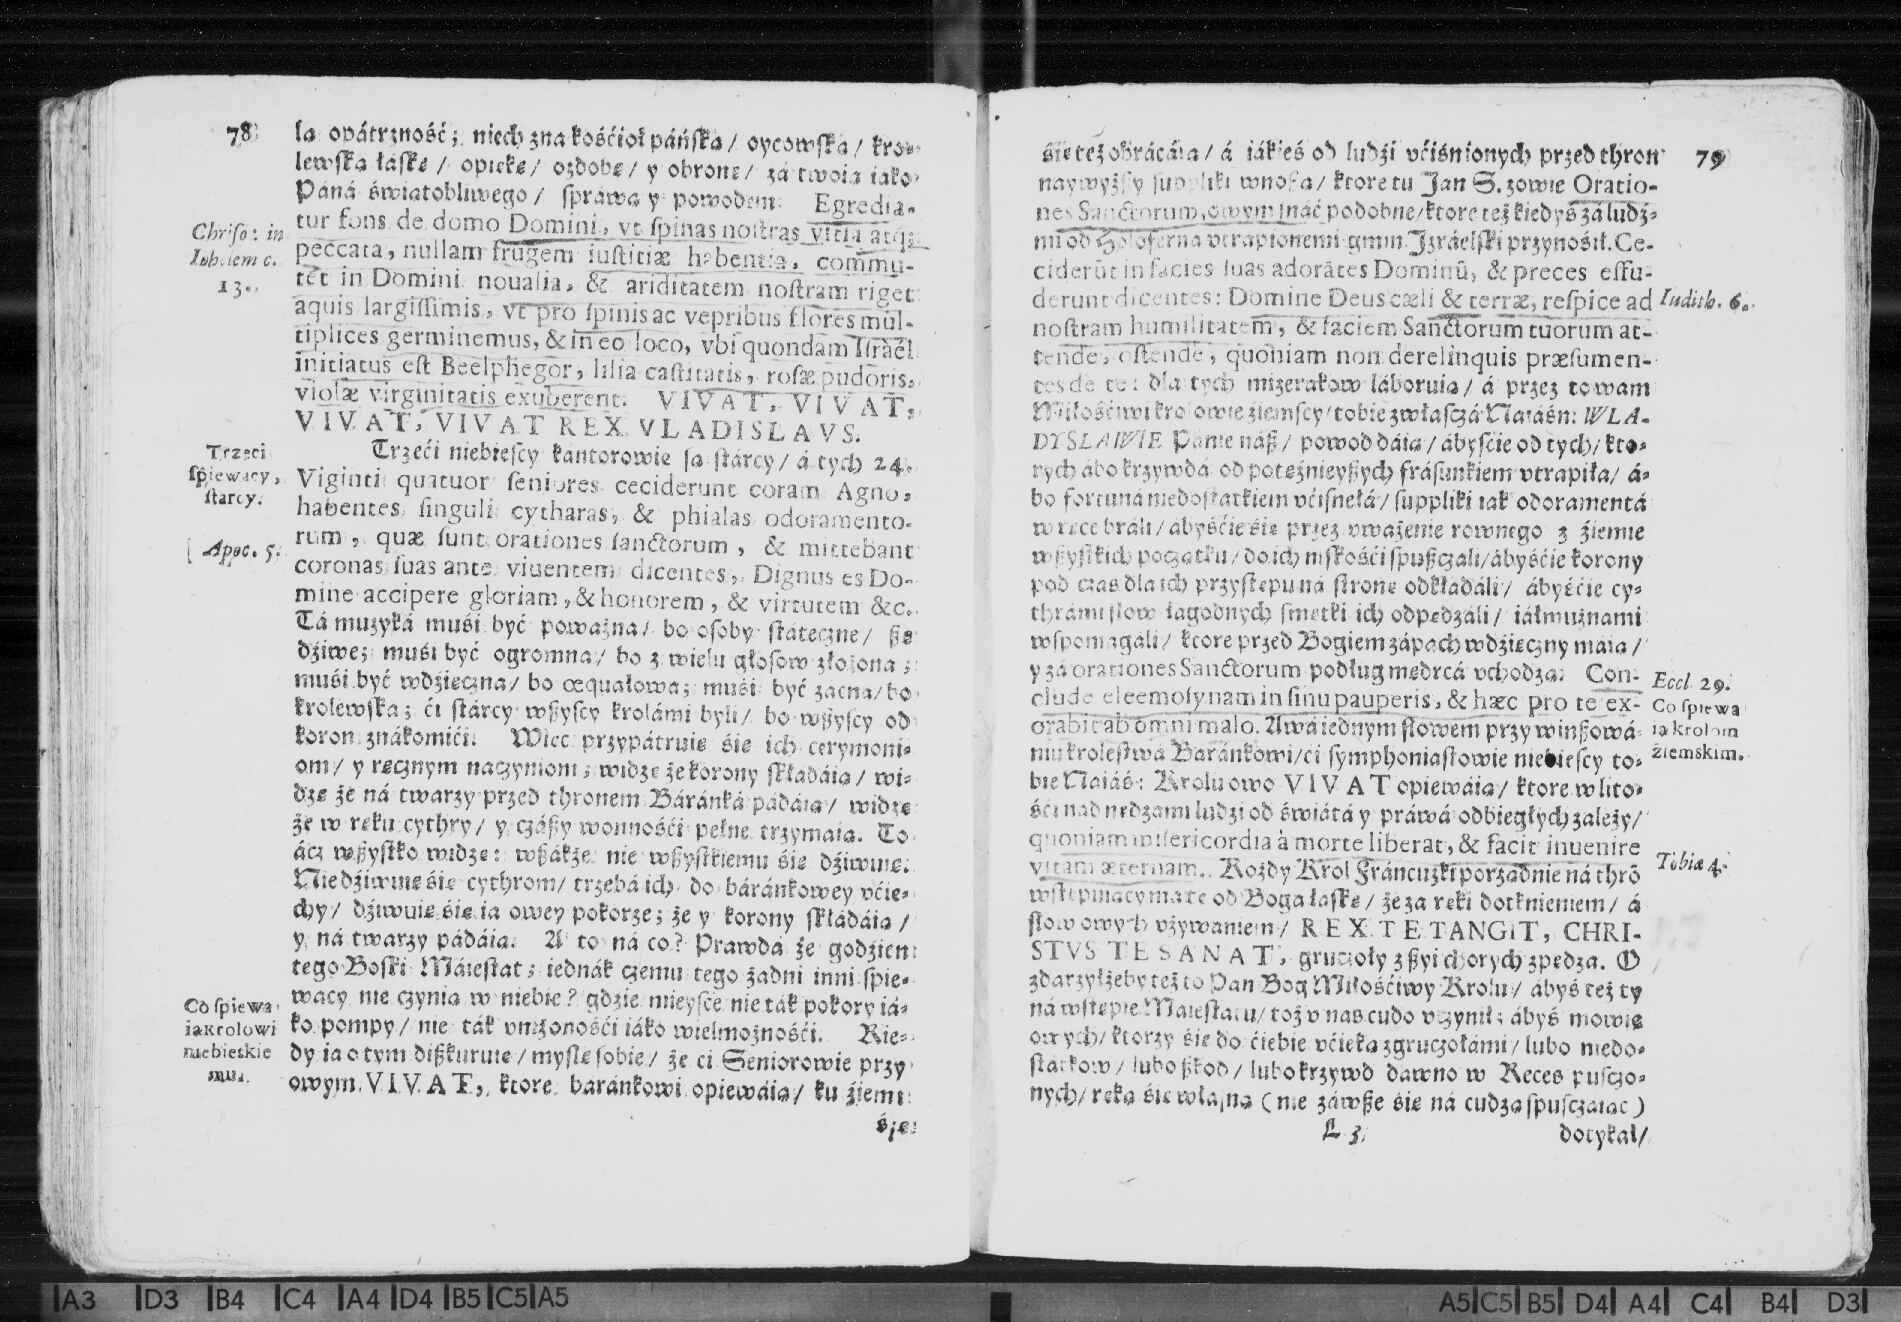 78
la opátrzność; niech zna kośćioł páńską / oycowską / kro-
lewską łáskę / opiekę / ozdobę / y obronę / zá twoią iáko
Páná świątobliwego / sprawą y powodem: Egredia-
tur fons de domo Domini, vt spinas nostras vitia atq;
peccata, nullam frugem iustitiæ habentia, commu-
tet in Domini noualia, & ariditatem nostram riget
aquis largissimis, vt pro spinis ac vepribus flores mul-
tiplices germinemus, & in eo loco, vbi quondam Israel
initiatus est Beelphegor, lilia castitatis, rosæ pudoris,
violæ virginitatis exuberent: VIVAT, VIVAT,
VIVAT, VIVAT REX VLADISLAVS.
Chriso: in
Iohelem c.
13.
Trzeći niebiescy kántorowie są stárcy / á tych 24.
Viginti quatuor seniores ceciderunt coram Agno,
habentes singuli cytharas, & phialas odoramento-
rum, quæ sunt orationes sanctorum, & mittebant
coronas suas ante viuentem dicentes, Dignus es Do-
mine accipere gloriam, & honorem, & virtutem &c.
Tá muzyká muśi być poważna / bo osoby státeczne / sę-
dźiwe; muśi być ogromna / bo z wielu głosow złożona;
muśi być wdźięczna / bo œquałowa; muśi być zacna / bo
krolewska; ći stárcy wßyscy krolámi byli / bo wßyscy od
koron znákomići. Więc przypátruię się ich cerymoni-
om / y ręcznym naczyniom; widzę że korony składáią / wi-
dzę że ná twarzy przed thronem Báránká pádáią / widzę
że w ręku cythry / y czáßy wonnośći pełne trzymáią. To
ácz wßystko widzę: wßákże nie wßystkiemu się dźiwuię.
Nie dźiwuię się cythrom / trzebá ich do báránkowey vćie-
chy / dźiwuię się ia owey pokorze; że y korony składáią /
y ná twarzy pádáią. A to ná co? Prawdá że godźien
tego Boski Máiestat; iednák czemu tego żadni inni śpie-
wacy nie czynią w niebie? gdzie mieysce nie ták pokory iá-
ko pompy / nie ták vniżonośći iáko wielmożnośći. Kie-
dy ia o tym dißkuruię / myślę sobie / że ci Seniorowie przy
owym VIVAT, ktore baránkowi opiewáią / ku źiemi
się
Trzeci
śpiewacy,
starcy.
Apoc. 5.
Co spiewa-
ią krolowi
niebieskie
mu.
79
się też obrácáią / á iákieś od ludźi vćiśnionych przed thron
naywyżßy suppliki wnoßą / ktore tu Jan S. zowie Oratio-
nes Sanctorum, owym snać podobne / ktore też kiedyś zá ludź-
mi od Holoferna vtrapionemi gmin Jzráelski przynośił. Ce-
ciderūt in facies suas adorātes Dominū, & preces effu-
derunt dicentes: Domine Deus cæli & terræ, respice ad
nostram humilitatem, & faciem Sanctorum tuorum at-
tende, ostende, quoniam non derelinquis præsumen-
tes de te: dla tych mizerakow láboruią / á przez to wam
Miłośćiwi krolowie źiemscy / tobie zwłasczá Naiáśn: WLA-
DYSLAWIE Pánie náß / powod dáią / ábyście od tych / kto-
rych ábo krzywdá od potężnieyßych frásunkiem vtrapiłá / á-
bo fortuná niedostátkiem vćisnęłá / suppliki iák odoramentá
w ręce bráli / ábyśćie się przez vważenie rownego z źiemie
wßystkich początku / do ich niskośći spußczáli / ábyśćie korony
pod czas dla ich przystępu ná stronę odkładáli / ábyśćie cy-
thrámi słow łagodnych smętki ich odpędzáli / iáłmużnami
wspomagáli / ktore przed Bogiem zápach wdźięczny máią /
y zá orationes Sanctorum podług mędrcá vchodzą: Con-
clude eleemosynam in sinu pauperis, & hæc pro te ex-
orabit ab omni malo. Awá iednym słowem przy winßowá-
niu krolestwá Báránkowi / ci symphoniastowie niebiescy to-
bie Naiáś: Krolu owo VIVAT opiewáią / ktore w lito-
śći nad nędzami ludźi od świátá y práwá odbiegłych zależy /
quoniam misericordia à morte liberat, & facit inuenire
vitam æternam. Kożdy Krol Fráncuzki porządnie ná thrō
wstępuiący ma tę od Boga łáskę / że zá ręki dotknieniem / á
słow owych vżywaniem / REX TE TANGIT, CHRI-
STVS TE SANAT, gruczoły z ßyi chorych zpędza. O
zdarzyłżeby też to Pan Bog Miłośćiwy Krolu / ábyś też ty
ná wstępie Máiestatu / toż v nas cudo vczynił; ábyś mowię
owych / ktorzy się do ćiebie vćieką z gruczołámi / lubo niedo-
státkow / lubo ßkod / lubo krzywd dawno w Reces pusczo-
nych / ręką się własną (nie záwße się ná cudzą spusczáiąc)
L 3
dotykał /
Iudith. 6.
Eccl. 29.
Co śpiewa
ią krolom
źiemskim.
Tobiæ 4.